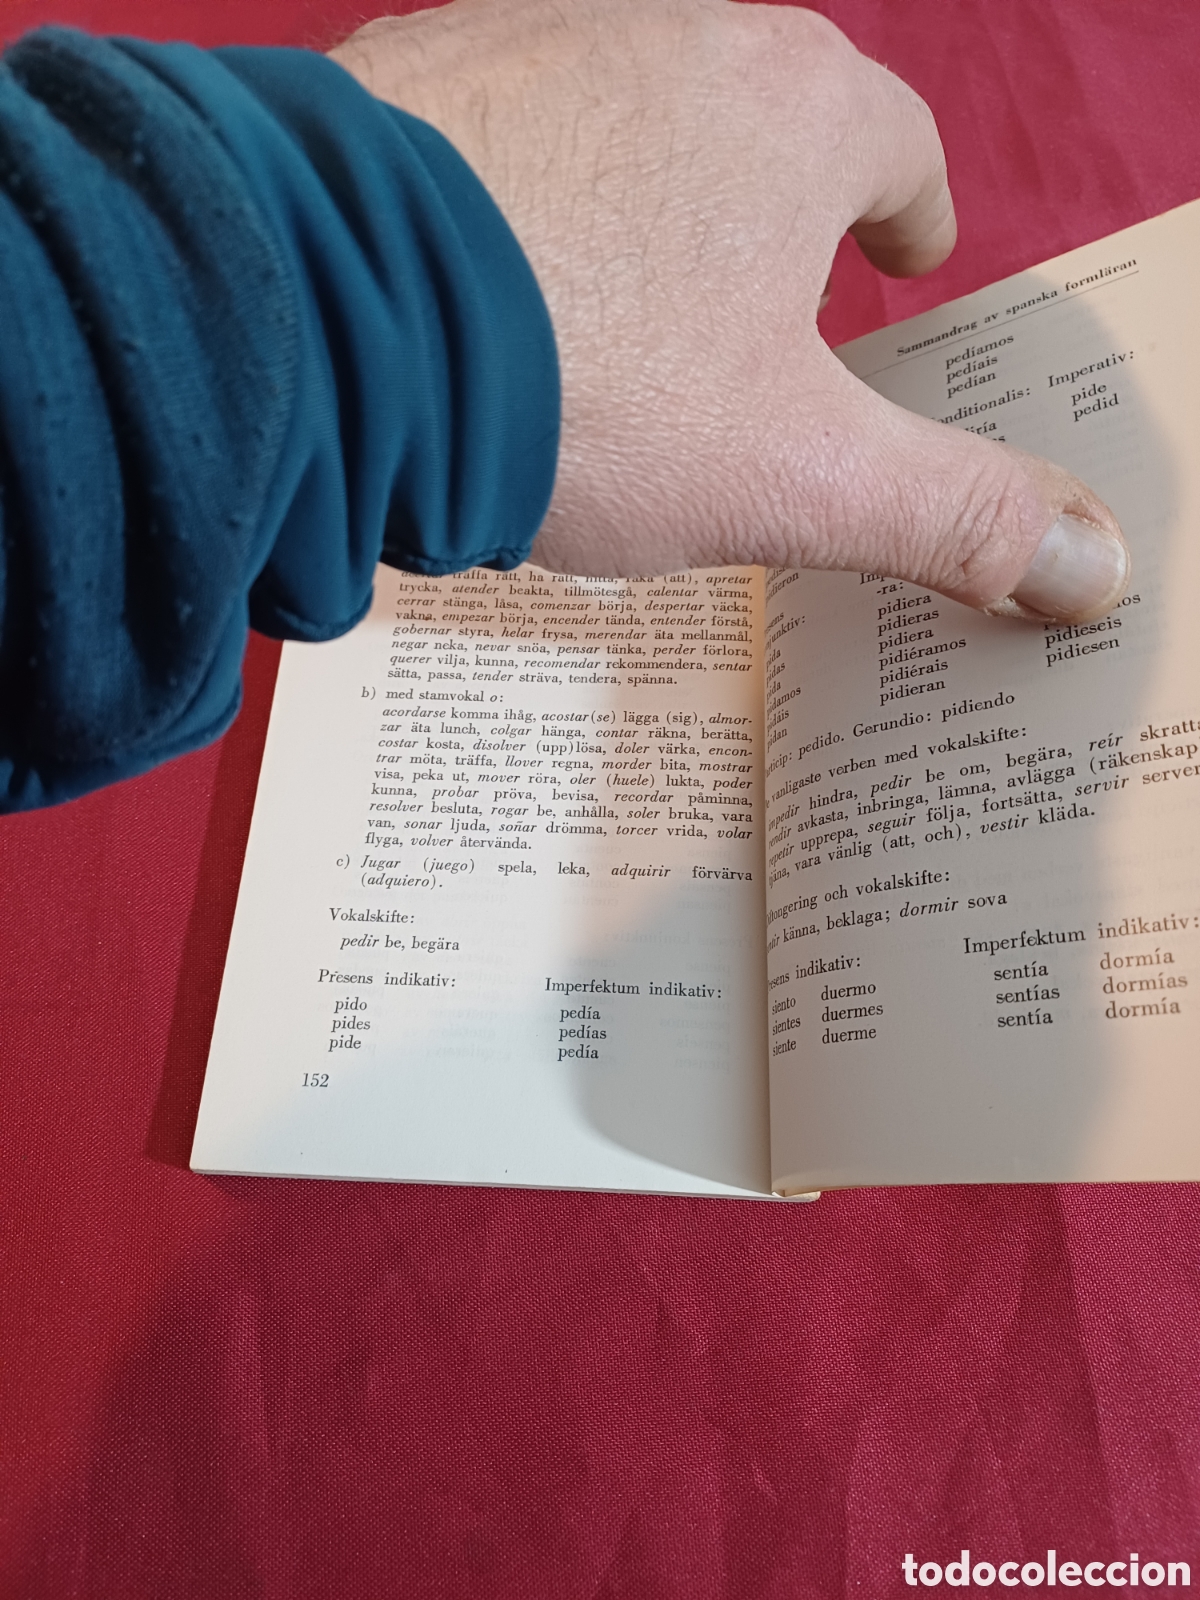 träffa rätt, ha rätt, hitta, råka (att), apretar
trycka, atender beakta, tillmötesgå, calentar värma,
cerrar stänga, låsa, comenzar börja, despertar väcka,
vakna, empezar börja, encender tända, entender förstå,
gobernar styra, helar frysa, merendar äta mellanmål,
negar neka, nevar snöa, pensar tänka, perder förlora,
querer vilja, kunna, recomendar rekommendera, sentar
sätta, passa, tender sträva, tendera, spänna.
b) med stamvokal o:
acordarse komma ihåg, acostar(se) lägga (sig), almor-
zar äta lunch, colgar hänga, contar räkna, berätta,
costar kosta, disolver (upp)lösa, doler värka, encon-
trar möta, träffa, llover regna, morder bita, mostrar
visa, peka ut, mover röra, oler (huele) lukta, poder
kunna, probar pröva, bevisa, recordar påminna,
resolver besluta, rogar be, anhålla, soler bruka, vara
van, sonar ljuda, soñar drömma, torcer vrida, volar
flyga, volver återvända.
c) Jugar (juego) spela, leka, adquirir förvärva
(adquiero).
Vokalskifte:
pedir be, begära
Presens indikativ: Imperfektum indikativ:
pido pedía
pides pedías
pide pedía
152
Sammandrag av spanska formläran
pedíamos
pedíais
pedían
Imperativ:
pide
pedid
-ra:
pidiera
pidieras
pidiera
pidiéramos pidieseis
pidiérais pidiesen
pidieran
pedido. Gerundio: pidiendo
vanligaste verben med vokalskifte:
hindra, pedir be om, begära, reír skratta
avkasta, inbringa, lämna, avlägga (räkenskap
upprepa, seguir följa, fortsätta, servir server
vara vänlig (att, och), vestir kläda.
och vokalskifte:
känna, beklaga; dormir sova
indikativ: Imperfektum indikativ:
siento duermo sentía dormía
sientes duermes sentías dormías
siente duerme sentía dormía
todocoleccion